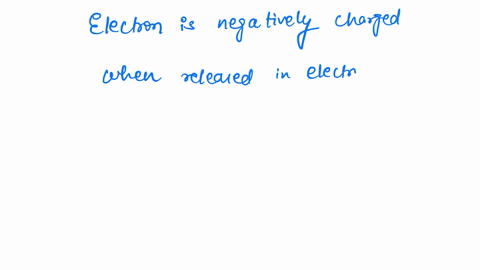 Electron is negatively charged
when released in electr